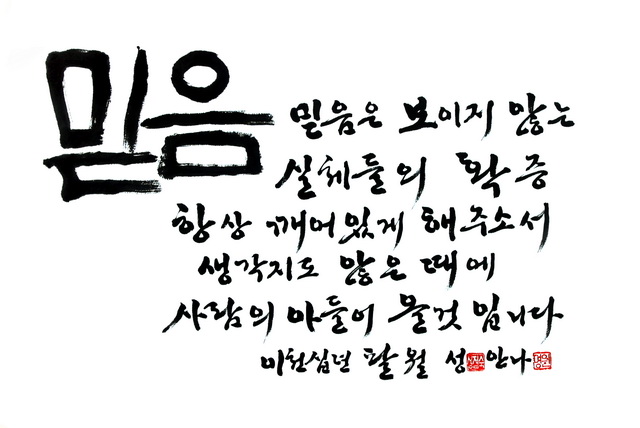 믿음
믿음은 보이지 않는
실체들의 확증
항상 깨어있게 해주소서
생각지도 않은 때에
사람의 아들이 올것 입니다
이천십년 팔월 성 안나